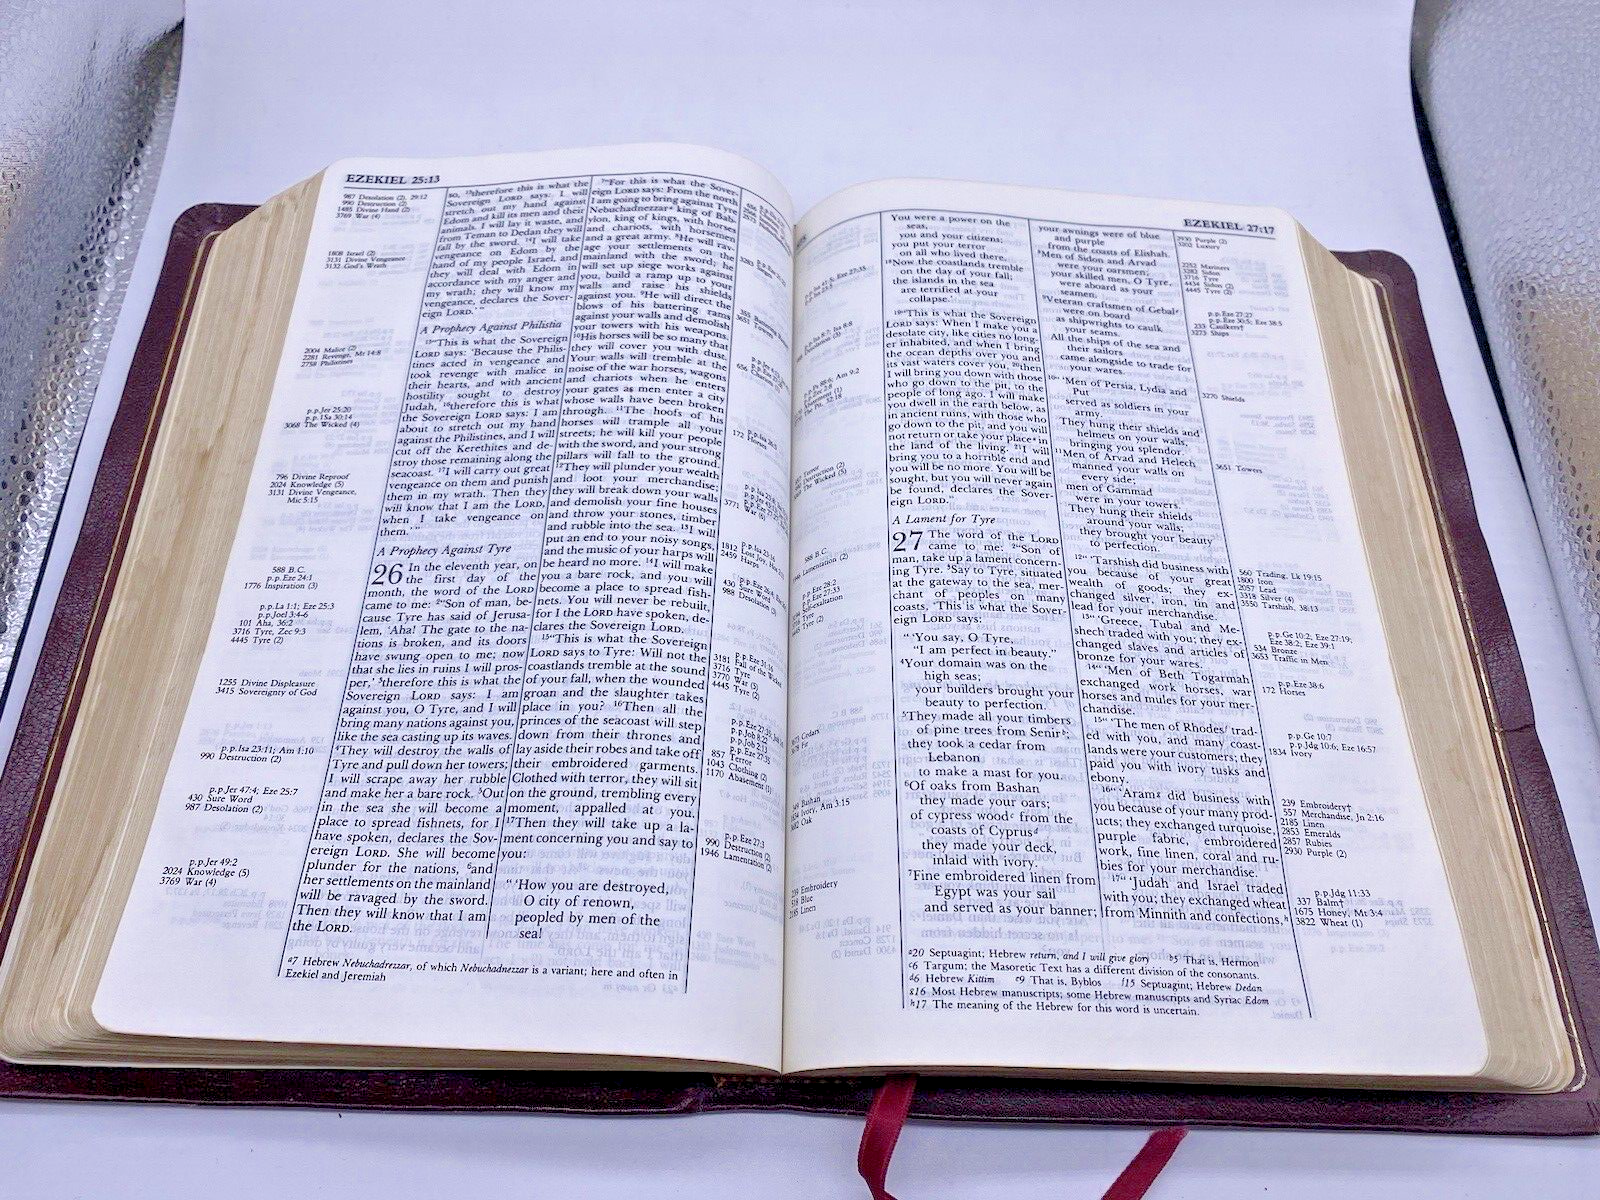 EZEKIEL 25:13
987 Desolation (2), 29:12
990 Destruction (2)
1485 Divine Hand (2)
3769 War (4)
1808 Israel (2)
3131 Divine Vengeance
3132 God's Wrath
2004 Malice (2)
2281 Revenge, Mt 14:8
2758 Philistines
p.p.Jer 25:20
p.p.1Sa 30:14
3068 The Wicked (4)
796 Divine Reproof
2024 Knowledge (5)
3131 Divine Vengeance,
Mic 5:15
588 B.C.
p.p.Eze 24:1
1776 Inspiration (3)
p.p.La 1:1; Eze 25:3
p.p.Joel 3:4-6
101 Aha, 36:2
3716 Tyre, Zec 9:3
4445 Tyre (2)
1255 Divine Displeasure
3415 Sovereignty of God
p.p.Isa 23:11; Am 1:10
990 Destruction (2)
p.p.Jer 47:4; Eze 25:7
430 Sure Word
987 Desolation (2)
p.p.Jer 49:2
2024 Knowledge (5)
3769 War (4)
so, 13therefore this is what the
Sovereign LORD says: I will
stretch out my hand against
Edom and kill its men and their
animals. I will lay it waste, and
from Teman to Dedan they will
fall by the sword. 14I will take
vengeance on Edom by the
hand of my people Israel, and
they will deal with Edom in
accordance with my anger and
my wrath; they will know my
vengeance, declares the Sover-
eign LORD.'"
A Prophecy Against Philistia
15"This is what the Sovereign
LORD says: 'Because the Philis-
tines acted in vengeance and
took revenge with malice in
their hearts, and with ancient
hostility sought to destroy
Judah, 16therefore this is what
the Sovereign LORD says: I am
about to stretch out my hand
against the Philistines, and I will
cut off the Kerethites and de-
stroy those remaining along the
seacoast. 17I will carry out great
vengeance on them and punish
them in my wrath. Then they
will know that I am the LORD,
when I take vengeance on
them.'"
A Prophecy Against Tyre
26 In the eleventh year, on
the first day of the
month, the word of the LORD
came to me: 2"Son of man, be-
cause Tyre has said of Jerusa-
lem, 'Aha! The gate to the na-
tions is broken, and its doors
have swung open to me; now
that she lies in ruins I will pros-
per,' 3therefore this is what the
Sovereign LORD says: I am
against you, O Tyre, and I will
bring many nations against you,
like the sea casting up its waves.
4They will destroy the walls of
Tyre and pull down her towers;
I will scrape away her rubble
and make her a bare rock. 5Out
in the sea she will become a
place to spread fishnets, for I
have spoken, declares the Sov-
ereign LORD. She will become
plunder for the nations, 6and
her settlements on the mainland
will be ravaged by the sword.
Then they will know that I am
the LORD.
7"For this is what the Sover-
eign LORD says: From the north
I am going to bring against Tyre
Nebuchadnezzara king of Bab-
ylon, king of kings, with horses
and chariots, with horsemen
and a great army. 8He will rav-
age your settlements on the
mainland with the sword; he
will set up siege works against
you, build a ramp up to your
walls and raise his shields
against you. 9He will direct the
blows of his battering rams
against your walls and demolish
your towers with his weapons.
10His horses will be so many that
they will cover you with dust.
Your walls will tremble at the
noise of the war horses, wagons
and chariots when he enters
your gates as men enter a city
whose walls have been broken
through. 11The hoofs of his
horses will trample all your
streets; he will kill your people
with the sword, and your strong
pillars will fall to the ground.
12They will plunder your wealth
and loot your merchandise;
they will break down your walls
and demolish your fine houses
and throw your stones, timber
and rubble into the sea. 13I will
put an end to your noisy songs,
and the music of your harps will
be heard no more. 14I will make
you a bare rock, and you will
become a place to spread fish-
nets. You will never be rebuilt,
for I the LORD have spoken, de-
clares the Sovereign LORD.
15"This is what the Sovereign
LORD says to Tyre: Will not the
coastlands tremble at the sound
of your fall, when the wounded
groan and the slaughter takes
place in you? 16Then all the
princes of the seacoast will step
down from their thrones and
lay aside their robes and take off
their embroidered garments.
Clothed with terror, they will sit
on the ground, trembling every
moment, appalled at you.
17Then they will take up a la-
ment concerning you and say to
you:
"'How you are destroyed,
O city of renown,
peopled by men of the
sea!
1812
2459 Harps
430 Sure Word
988 Desolation
3181 Fall of the Wicked
3716 Tyre
3770 War (5)
4445 Tyre (2)
857 Terror
1043 Clothing (2)
1170 Abasement (1)
p.p.Eze 27:2
990 Destruction (2)
1946 Lamentation (2)
a7 Hebrew Nebuchadrezzar, of which Nebuchadnezzar is a variant; here and often in
Ezekiel and Jeremiah
EZEKIEL 27:17
588 B.C.
Lamentation (2)
p.p.Eze 28:2
Eze 27:33
Self-exaltation
Tyre (2)
Cedars
Fir
Bashan
Ivory, Am 3:15
Oak
Embroidery
Blue
Linen
You were a power on the
seas,
you and your citizens;
you put your terror
on all who lived there.
18Now the coastlands tremble
on the day of your fall;
the islands in the sea
are terrified at your
collapse.'
19"This is what the Sovereign
LORD says: When I make you a
desolate city, like cities no long-
er inhabited, and when I bring
the ocean depths over you and
its vast waters cover you, 20then
I will bring you down with those
who go down to the pit, to the
people of long ago. I will make
you dwell in the earth below, as
in ancient ruins, with those who
go down to the pit, and you will
not return or take your placea in
the land of the living. 21I will
bring you to a horrible end and
you will be no more. You will be
sought, but you will never again
be found, declares the Sover-
eign LORD."
A Lament for Tyre
27 The word of the LORD
came to me: 2"Son of
man, take up a lament concern-
ing Tyre. 3Say to Tyre, situated
at the gateway to the sea, mer-
chant of peoples on many
coasts, 'This is what the Sover-
eign LORD says:
"'You say, O Tyre,
"I am perfect in beauty."
4Your domain was on the
high seas;
your builders brought your
beauty to perfection.
5They made all your timbers
of pine trees from Senirb;
they took a cedar from
Lebanon
to make a mast for you.
6Of oaks from Bashan
they made your oars;
of cypress woodc from the
coasts of Cyprusd
they made your deck,
inlaid with ivory.
7Fine embroidered linen from
Egypt was your sail
and served as your banner;
your awnings were of blue
and purple
from the coasts of Elishah.
8Men of Sidon and Arvad
were your oarsmen;
your skilled men, O Tyre,
were aboard as your
seamen.
9Veteran craftsmen of Gebale
were on board
as shipwrights to caulk
your seams.
All the ships of the sea and
their sailors
came alongside to trade for
your wares.
10"'Men of Persia, Lydia and
Put
served as soldiers in your
army.
They hung their shields and
helmets on your walls,
bringing you splendor.
11Men of Arvad and Helech
manned your walls on
every side;
men of Gammad
were in your towers.
They hung their shields
around your walls;
they brought your beauty
to perfection.
12"'Tarshish did business with
you because of your great
wealth of goods; they ex-
changed silver, iron, tin and
lead for your merchandise.
13"'Greece, Tubal and Me-
shech traded with you; they ex-
changed slaves and articles of
bronze for your wares.
14"'Men of Beth Togarmah
exchanged work horses, war
horses and mules for your mer-
chandise.
15"'The men of Rhodesf trad-
ed with you, and many coast-
lands were your customers; they
paid you with ivory tusks and
ebony.
16"'Aramg did business with
you because of your many prod-
ucts; they exchanged turquoise,
purple fabric, embroidered
work, fine linen, coral and ru-
bies for your merchandise.
17"'Judah and Israel traded
with you; they exchanged wheat
from Minnith and confections,h
2930 Purple (2)
3202 Luxury
2252 Mariners
3283 Sidon
3716 Tyre
4434 Sidon (2)
4445 Tyre (2)
p.p.Eze 27:27
p.p.Eze 30:5; Eze 38:5
233 Caulkers†
3273 Ships
3270 Shields
3651 Towers
560 Trading, Lk 19:15
1800 Iron
2057 Lead
3318 Silver (4)
3550 Tarshish, 38:13
p.p.Ge 10:2; Eze 27:19;
Eze 38:2; Eze 39:1
534 Bronze
3653 Traffic in Men
p.p.Eze 38:6
172 Horses
p.p.Ge 10:7
p.p.Jdg 10:6; Eze 16:57
1834 Ivory
239 Embroidery†
557 Merchandise, Jn 2:16
2185 Linen
2853 Emeralds
2857 Rubies
2930 Purple (2)
p.p.Jdg 11:33
337 Balm†
1675 Honey, Mt 3:4
3822 Wheat (1)
a20 Septuagint; Hebrew return, and I will give glory b5 That is, Hermon
c6 Targum; the Masoretic Text has a different division of the consonants.
d6 Hebrew Kittim e9 That is, Byblos f15 Septuagint; Hebrew Dedan
g16 Most Hebrew manuscripts; some Hebrew manuscripts and Syriac Edom
h17 The meaning of the Hebrew for this word is uncertain.